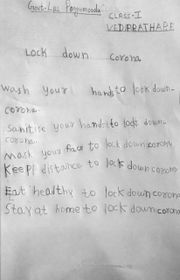 Govt-Lps
CLASS-I
Lock down corona
wash your hands to lock down-
corona.
sanitise your hands to lock down-
corona.
Mask your face to lock down corona
Keep distance to lock down corona
Eat healthy to lock down corona
Stay at home to lock down corona